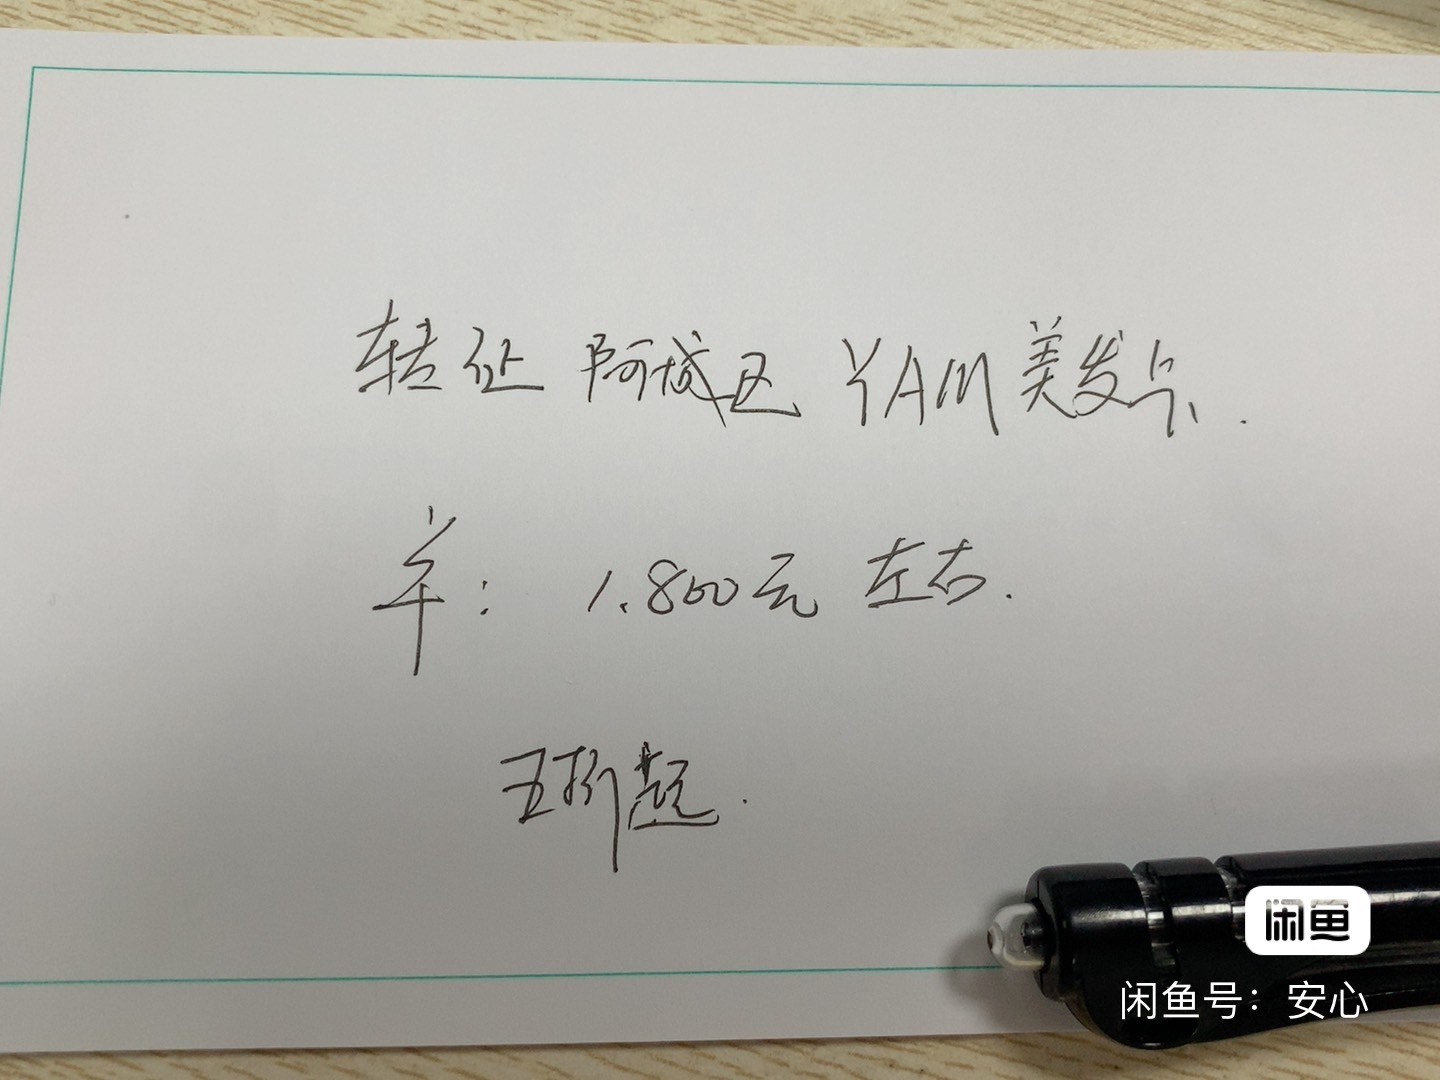 转让 阿城区 YAM美发卡.
卡: 1.800元 左右.
五折起.
闲鱼
闲鱼号：安心